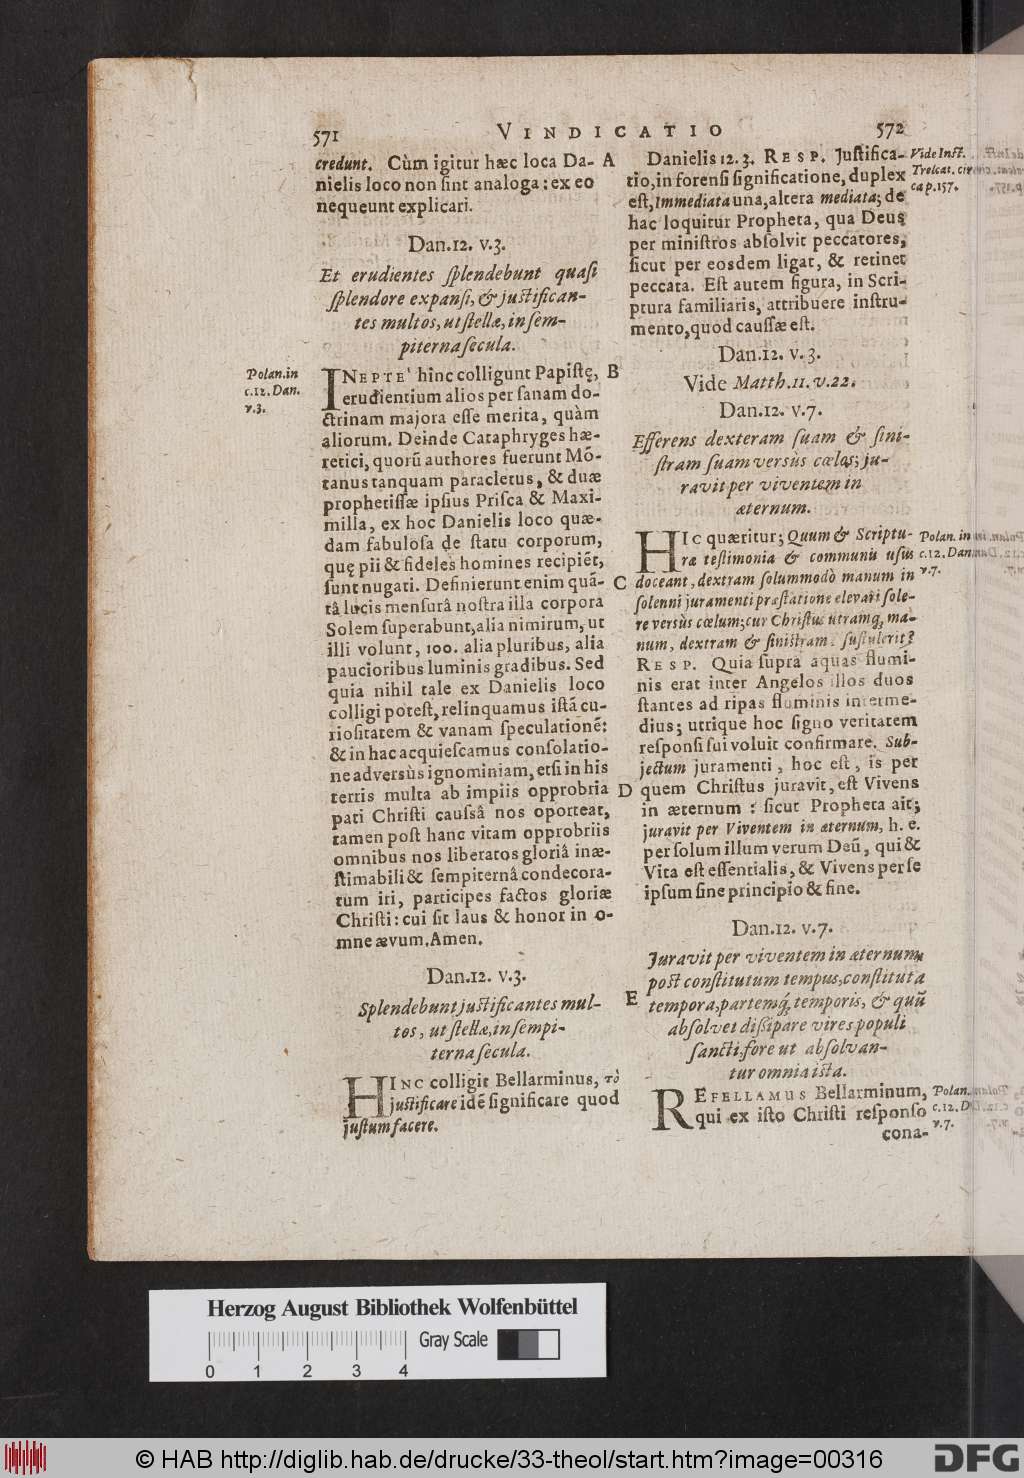 571 VINDICATIO 572
credunt. Cùm igitur hæc loca Da- A
nielis loco non sint analoga: ex eo
nequeunt explicari.
Dan.12. v.3.
Et erudientes splendebunt quasi
splendore expansi, & justifican-
tes multos, ut stellæ, in sem-
piterna secula.
Polan. in
c.12. Dan.
v.3.
INEPTE' hînc colligunt Papistę, B
erudientium alios per sanam do-
ctrinam majora esse merita, quàm
aliorum. Deinde Cataphryges hæ-
retici, quorū authores fuerunt Mō-
tanus tanquam paracletus, & duæ
prophetissæ ipsius Prisca & Maxi-
milla, ex hoc Danielis loco quæ-
dam fabulosa de statu corporum,
quę pii & fideles homines recipiēt,
sunt nugati. Definierunt enim quā- C
tâ lucis mensurâ nostra illa corpora
Solem superabunt, alia nimirum, ut
illi volunt, 100. alia pluribus, alia
paucioribus luminis gradibus. Sed
quia nihil tale ex Danielis loco
colligi potest, relinquamus istā cu-
riositatem & vanam speculationē:
& in hac acquiescamus consolatio-
ne adversùs ignominiam, etsi in his
terris multa ab impiis opprobria D
pati Christi caussâ nos oporteat,
tamen post hanc vitam opprobriis
omnibus nos liberatos gloriâ inæ-
stimabili & sempiternâ condecora-
tum iri, participes factos gloriæ
Christi: cui sit laus & honor in o-
mne ævum. Amen.
Dan.12. v.3.
Splendebunt justificantes mul-
tos, ut stellæ, in sempi-
terna secula.
HINC colligit Bellarminus, τὸ
justificare idē significare quod
justum facere.
Danielis 12. 3. RESP. Justifica-
tio, in forensi significatione, duplex
est, Immediata una, altera mediata; de
hac loquitur Propheta, qua Deus
per ministros absolvit peccatores,
sicut per eosdem ligat, & retinet
peccata. Est autem figura, in Scri-
ptura familiaris, attribuere instru-
mento, quod caussæ est.
Vide Inst.
Trelcat. cir
cap.157.
Dan.12. v.3.
Vide Matth.11. v.22.
Dan.12. v.7.
Efferens dexteram suam & sini-
stram suam versùs cœlos; ju-
ravit per viventem in
æternum.
HIC quæritur; Quum & Scriptu-
ræ testimonia & communis usus
doceant, dextram solummodò manum in
solenni juramenti præstatione elevari sole-
re versùs cœlum; cur Christus utramq́, ma-
num, dextram & sinistram sustulerit?
RESP. Quia supra aquas flumi-
nis erat inter Angelos illos duos
stantes ad ripas fluminis interme-
dius; utrique hoc signo veritatem
responsi sui voluit confirmare. Sub-
jectum juramenti, hoc est, is per
quem Christus juravit, est Vivens
in æternum: sicut Propheta ait;
juravit per Viventem in æternum, h. e.
per solum illum verum Deū, qui &
Vita est essentialis, & Vivens per se
ipsum sine principio & fine.
Polan. in
c.12. Dan.
v.7.
Dan.12. v.7.
Juravit per viventem in æternum,
post constitutum tempus, constituta
E tempora, partemq́, temporis, & quū
absolvet dissipare vires populi
sancti, fore ut absolvan-
tur omnia ista.
REFELLAMUS Bellarminum,
qui ex isto Christi responso
cona-
Polan.
c.12. D
v.7.
Herzog August Bibliothek Wolfenbüttel
Gray Scale
0 1 2 3 4
© HAB http://diglib.hab.de/drucke/33-theol/start.htm?image=00316
DFG